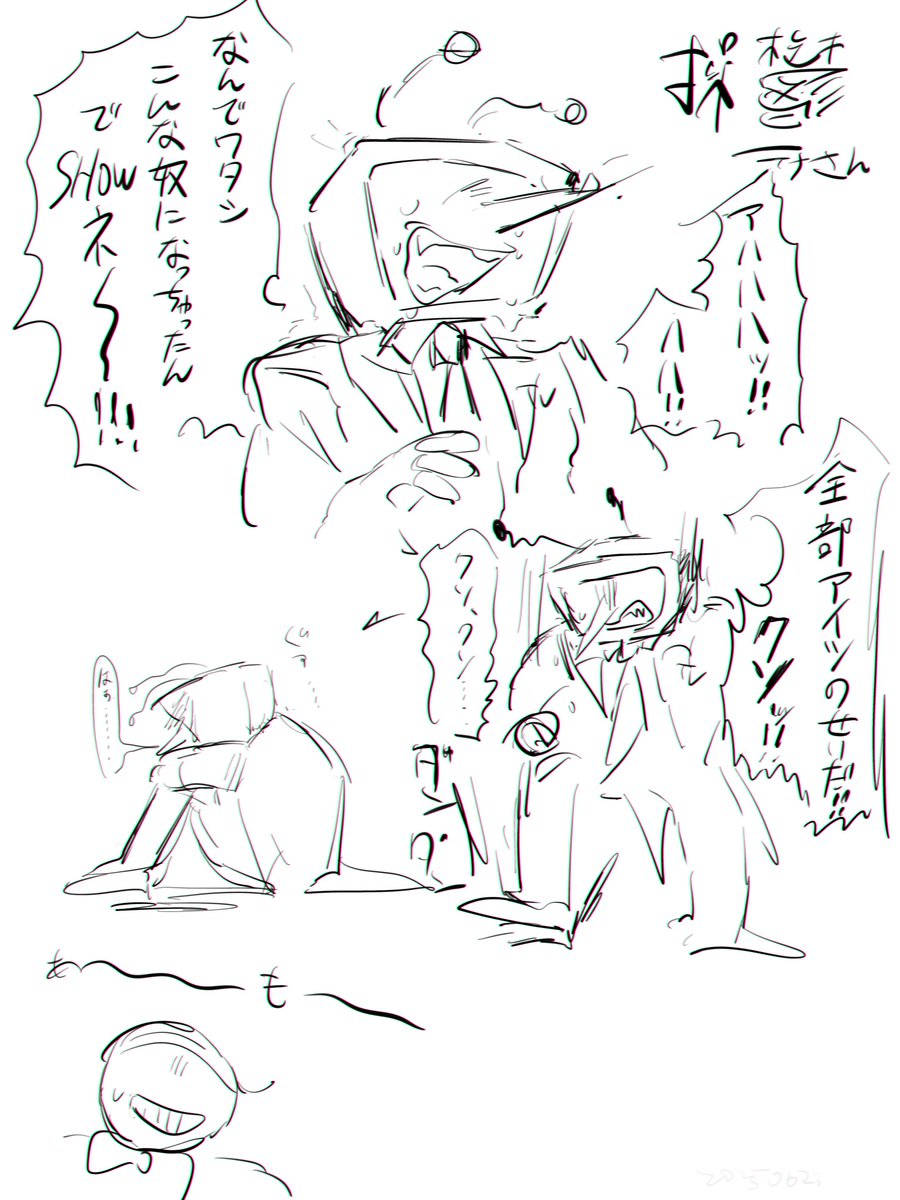 躁
鬱
テナさん
アハハハッ!!
ハハ!!
なんでワタシ
こんな奴になっちゃったん
で
SHOW
ネ〜〜!!!
全部アイツのせいだ!!
クソッ!!
クソ、クソ……
ダンダ
はぁ……
ぐぅ……
あ〜〜も〜〜